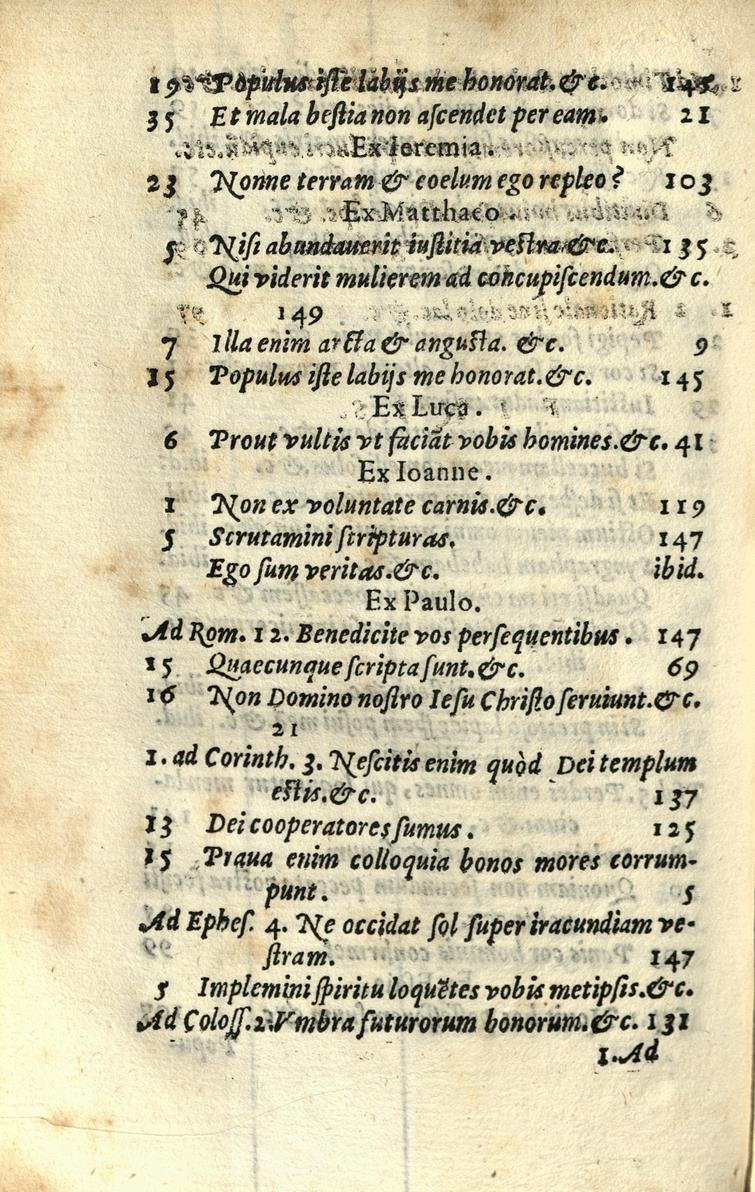 19 Populus iste labijs me honorat. & c. 145
35 Et mala bestia non ascendet per eam. 21
Ex Ieremia.
23 Nonne terram & eoelum ego repleo? 103
Ex Matthaeo.
5 Nisi abundauerit iustitia vestra &c. 135
Qui viderit mulierem ad concupiscendum. & c.
149
7 Illa enim arcta & angusta. &c. 9
15 Populus iste labijs me honorat. &c. 145
Ex Luca.
6 Prout vultis vt faciāt vobis homines. &c. 41
Ex Ioanne.
1 Non ex voluntate carnis. &c. 119
5 Scrutamini scripturas. 147
Ego sum veritas. &c. ibid.
Ex Paulo.
Ad Rom. 12. Benedicite vos persequentibus. 147
15 Quaecunque scripta sunt. &c. 69
16 Non Domino nostro Iesu Christo seruiunt. &c.
21
1. ad Corinth. 3. Nescitis enim quòd Dei templum
estis. &c. 137
13 Dei cooperatores sumus. 125
15 Praua enim colloquia bonos mores corrum-
punt. 5
Ad Ephes. 4. Ne occidat sol super iracundiam ve-
stram. 147
5 Implemini spiritu loquētes vobis metipsis. &c.
Ad Coloss. 2. Vmbra futurorum bonorum. &c. 131
1. Ad